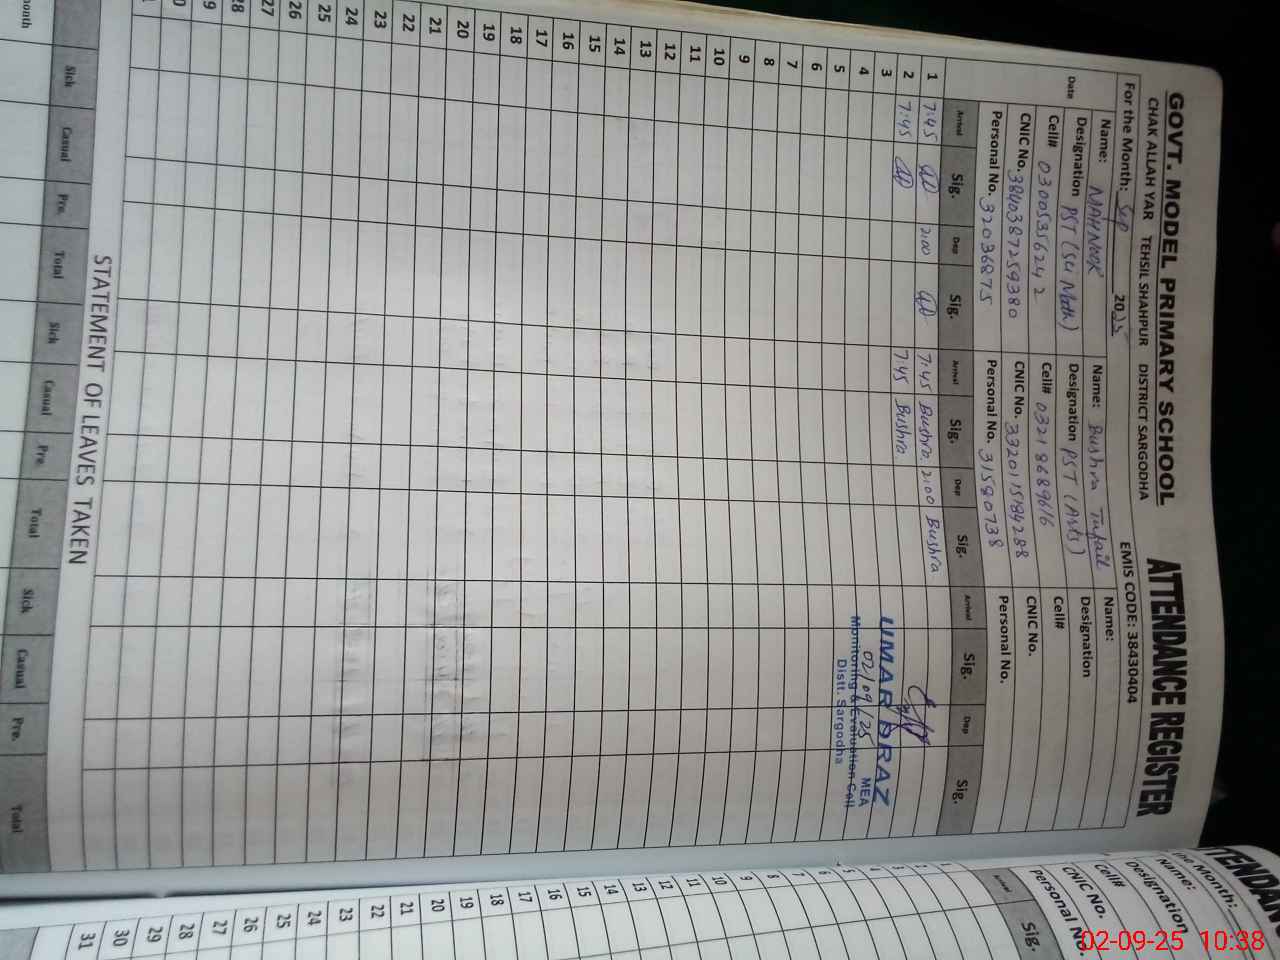 GOVT. MODEL PRIMARY SCHOOL ATTENDANCE REGISTER
CHAK ALLAH YAR TEHSIL SHAHPUR DISTRICT SARGODHA EMIS CODE: 38430404
For the Month: Sep 2025
Date
Name: MAHNOOR
Designation PST (Sci Math)
Cell# 03005356242
CNIC No. 3840387259380
Personal No. 32036875
Name: Bushra Tufail
Designation PST (Arts)
Cell# 03218689616
CNIC No. 3320115184288
Personal No. 31580738
Name:
Designation
Cell#
CNIC No.
Personal No.
Arrival Sig. Dep Sig. Arrival Sig. Dep Sig. Arrival Sig. Dep Sig.
1 7:45 2:00 7:45 Bushra 2:00 Bushra
2 7:45 7:45 Bushra
3
4
5
6
7
8
9
10
11
12
13
14
15
16
17
18
19
20
21
22
23
24
25
26
27
28
UMAR DRAZ
02/09/25 MEA
Monitoring & Evaluation Cell
Distt. Sargodha
STATEMENT OF LEAVES TAKEN
Sick Casual Pre. Total Sick Casual Pre. Total Sick Casual Pre. Total
Name:
Designation
Cell#
CNIC No.
Personal No.
Arrival Sig.
1
2
3
4
5
6
7
8
9
10
11
12
13
14
15
16
17
18
19
20
21
22
23
24
25
26
27
28
29
30
31
02-09-25 10:38